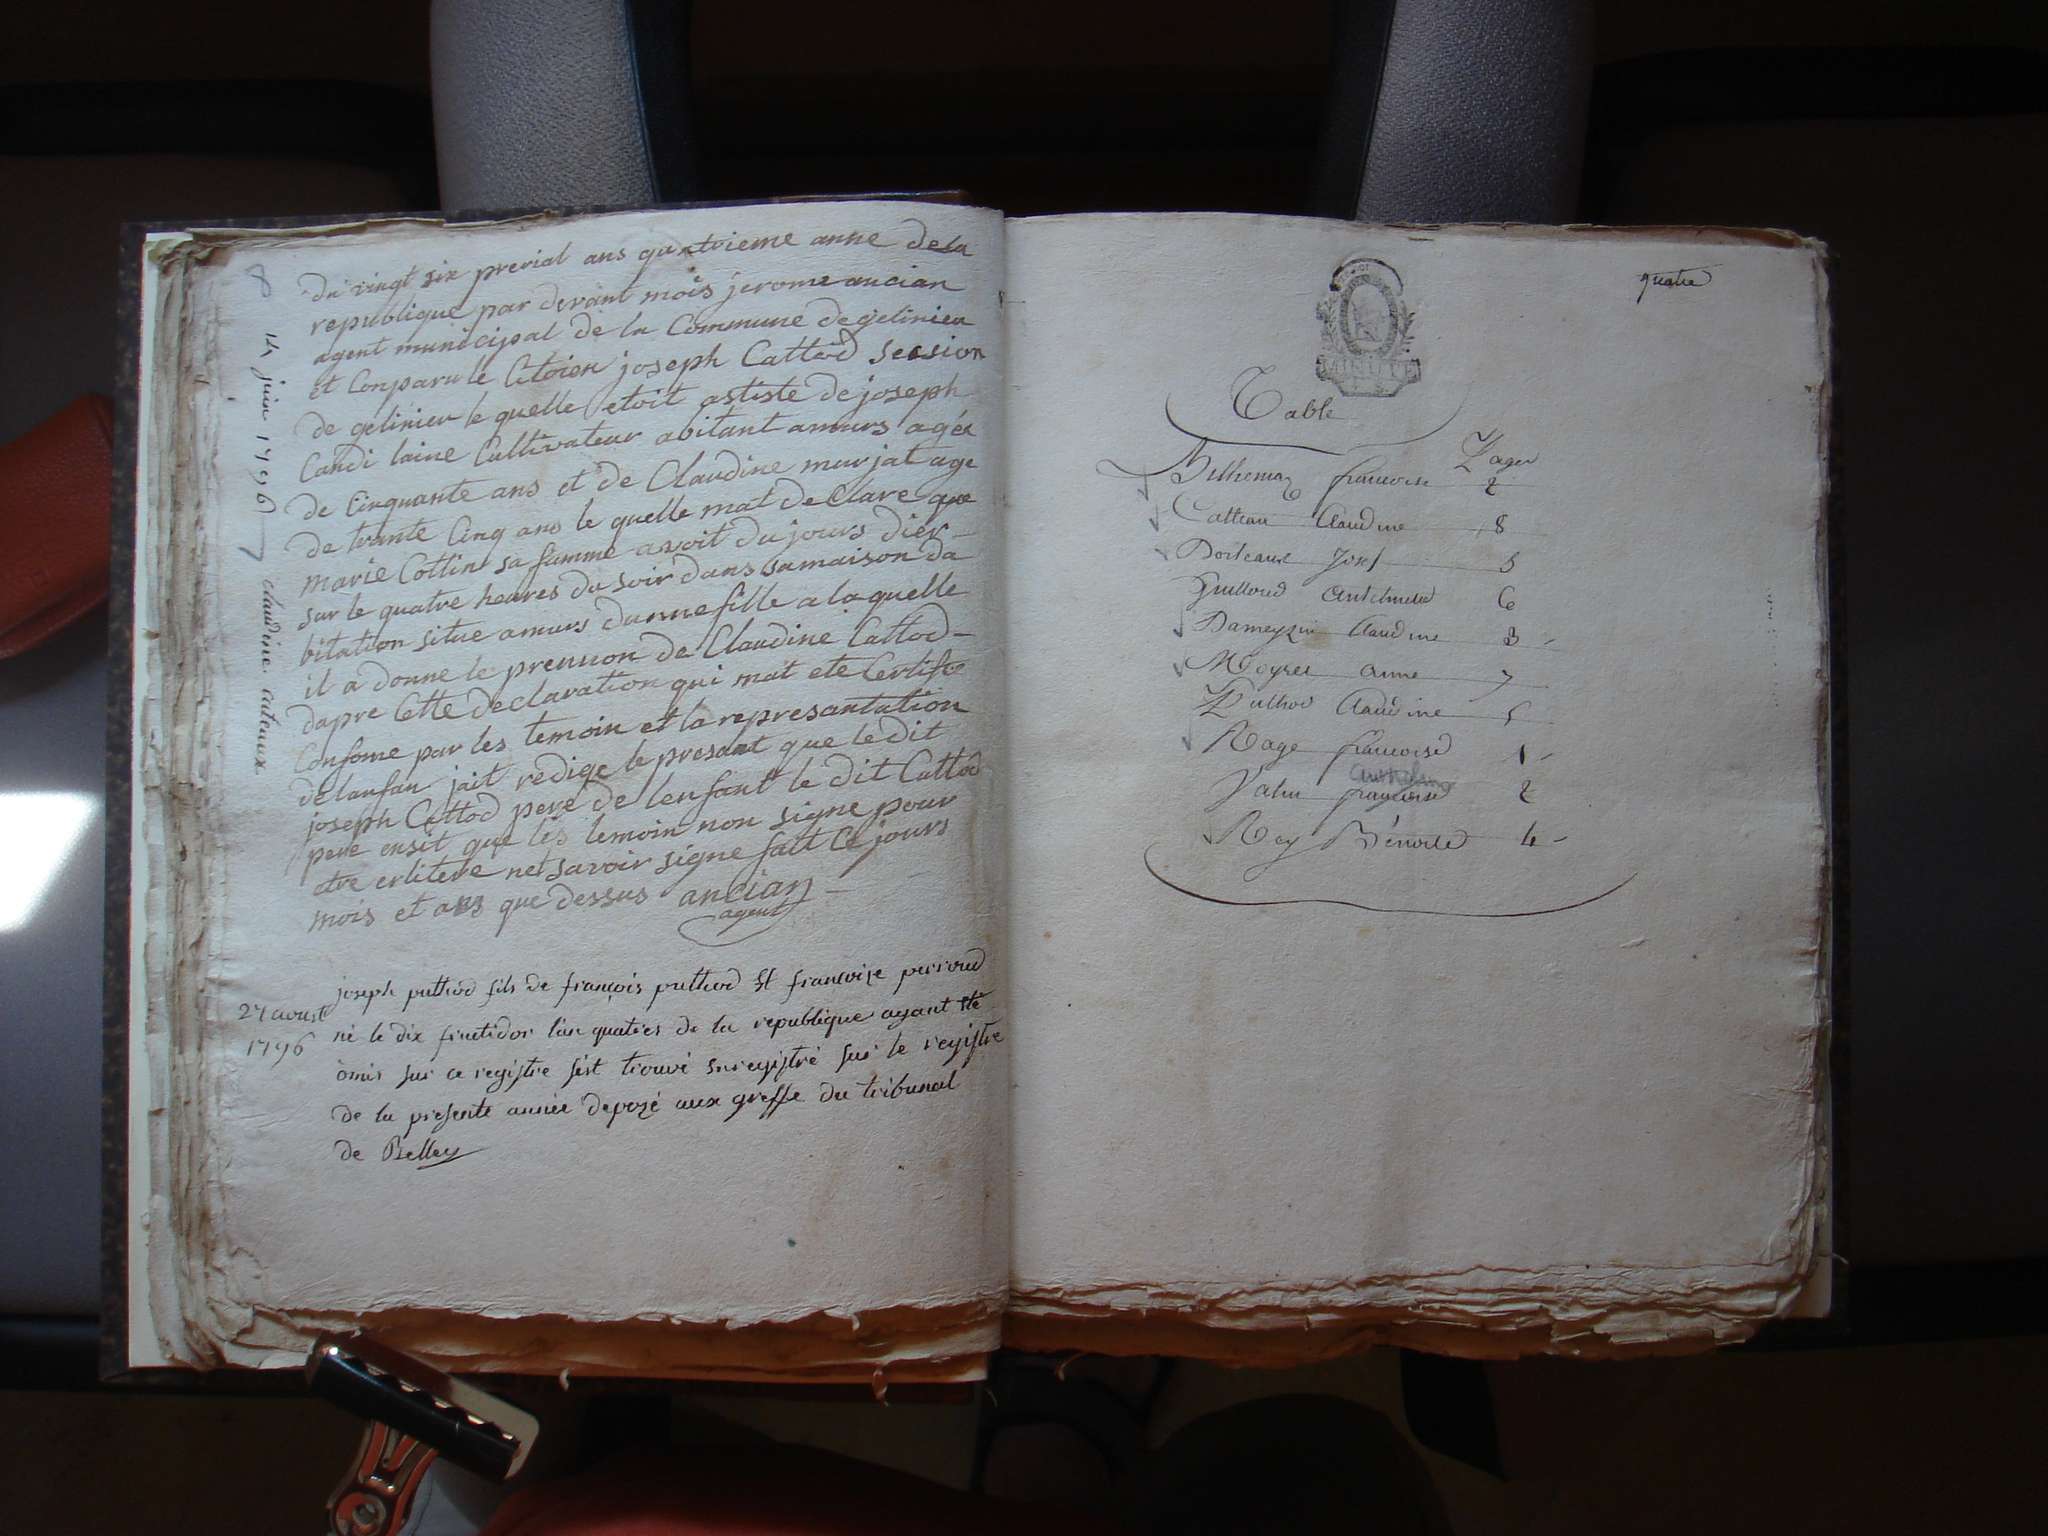 8
14 juin 1796
claudine cateaux
du vingt six prerial ans quatrieme anne dela
republique par devant mois jerome ancian
agent municipal de la Commune de gelinieu
et Conparu le Citoien joseph Cattod
de gelinieu le quelle etoit astiste de joseph
Candi laine Cultivateur abitant amurs agéz
de Cinquante ans et de Claudine murjat age
de trante Cinq ans le quelle mat de Clare que
marie Cottin sa famme avoit du jours dier
sur le quatre heures du soir dans samaison da
bitation situe amurs dunne fille a la quelle
il a donne le prennon de Claudine Cattod
dapre Cette declaration qui mat ete Certifie
Confome par les temoin et la represantation
delanfan jait redige le presant que le dit
joseph Cattod pere de lenfant le dit Cattod
pere ensit que les temoin non signe pour
atre erlitere net savoir signe fait Ce jours
mois et ans que dessus ancian
agent
27 aoust
1796
joseph puthod fils de françois puthod et francoise perroud
né le dix fructidor l'an quatres de la republique ayant ete
omis sur ce registre s'est trouvé enregistré sur le registre
de la presente année depozé aux greffe du tribunal
de Belley
quatre
MINUTE
Table
Pages
francoise 2
Catteau Claudine 8
Josef 5
Guilloud Anthelme 6
Dameyzin Claudine 3
Moyret anne 7
Puthod Claudine 5
Nage francoise 1
francoise 2
Rey Bénoite 4